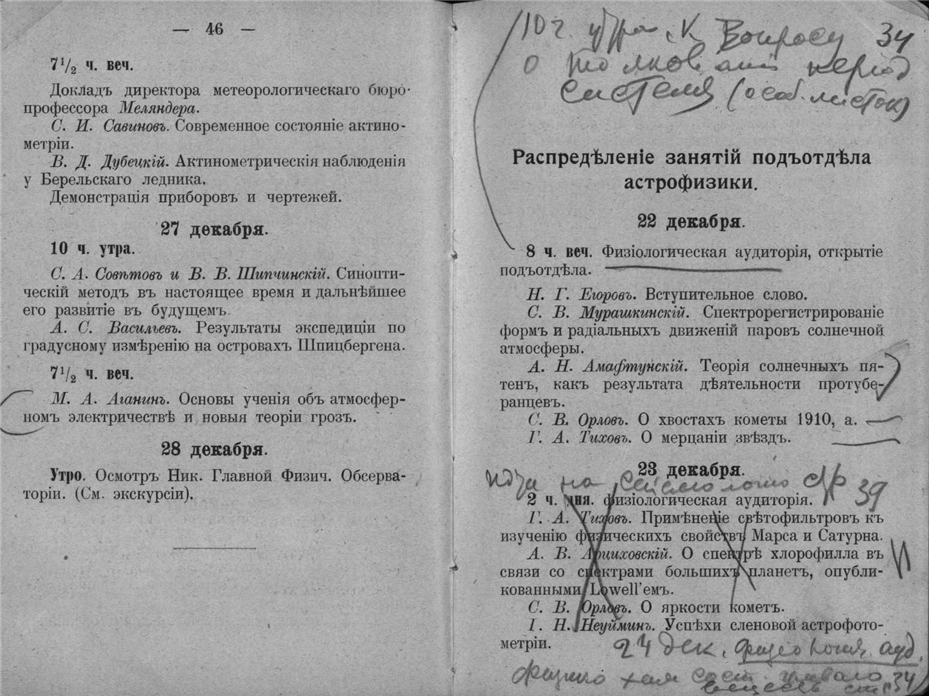 — 46 —
7½ ч. веч.
Докладъ директора метеорологическаго бюро-
профессора Меляндера.
С. И. Савиновъ. Современное состоянiе актино-
метрiи.
В. Д. Дубецкiй. Актинометрическiя наблюденiя
у Берельскаго ледника.
Демонстрацiя приборовъ и чертежей.
27 декабря.
10 ч. утра.
С. А. Совѣтовъ и В. В. Шипчинскiй. Синопти-
ческiй методъ въ настоящее время и дальнѣйшее
его развитiе въ будущемъ
А. С. Васильевъ. Результаты экспедицiи по
градусному измѣренiю на островахъ Шпицбергена.
7½ ч. веч.
М. А. Аганинъ. Основы ученiя объ атмосфер-
номъ электричествѣ и новыя теорiи грозъ.
28 декабря.
Утро. Осмотръ Ник. Главной Физич. Обсерва-
торiи. (См. экскурсiи).
10 ч. утра К Вопросу 34
о толковании период
системы (особ. листок)
Распредѣленiе занятiй подъотдѣла
астрофизики.
22 декабря.
8 ч. веч. Физiологическая аудиторiя, открытiе
подъотдѣла.
Н. Г. Егоровъ. Вступительное слово.
С. В. Мурашкинскiй. Спектрорегистрированiе
формъ и радiальныхъ движенiй паровъ солнечной
атмосферы.
А. Н. Амафтунскiй. Теорiя солнечныхъ пя-
тенъ, какъ результата дѣятельности протубе-
ранцевъ.
С. В. Орловъ. О хвостахъ кометы 1910, а.
Г. А. Тиховъ. О мерцанiи звѣздъ.
23 декабря.
на Сейсмологию стр 39
2 ч. дня. физiологическая аудиторiя.
Г. А. Тиховъ. Примѣненiе свѣтофильтровъ къ
изученiю физическихъ свойствъ Марса и Сатурна.
А. В. Арциховскiй. О спектрѣ хлорофилла въ
связи со спектрами большихъ планетъ, опубли-
кованными Lowell’емъ.
С. В. Орловъ. О яркости кометъ.
I. Н. Неуйминъ. Успѣхи сленовой астрофото-
метрiи.
24 дек. ауд.
34